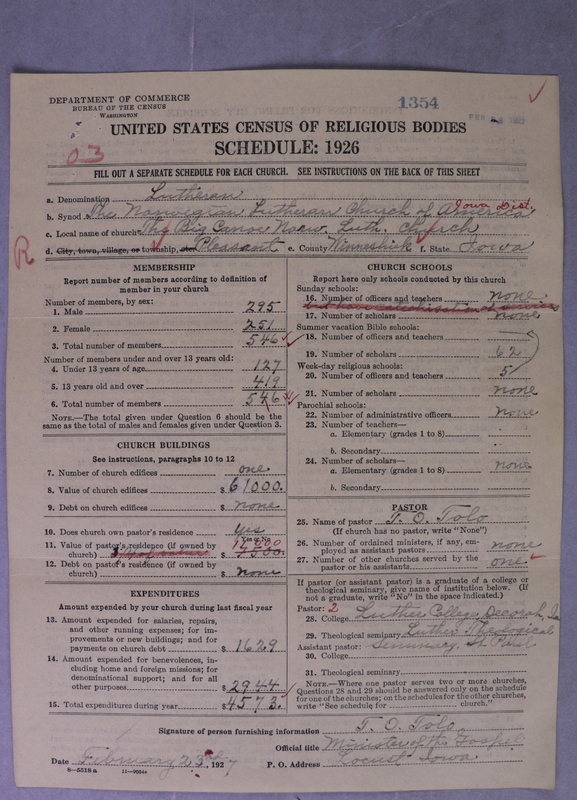 DEPARTMENT OF COMMERCE
BUREAU OF THE CENSUS
WASHINGTON
1354
03
UNITED STATES CENSUS OF RELIGIOUS BODIES
SCHEDULE: 1926
FILL OUT A SEPARATE SCHEDULE FOR EACH CHURCH. SEE INSTRUCTIONS ON THE BACK OF THIS SHEET
a. Denomination Lutheran
b. Synod The Norwegian Lutheran Church of America Iowa Dist.
c. Local name of church The Big Canoe Norw. Luth. Church
R
d. City, town, village, or township, Pleasant e. County Winneshiek f. State Iowa
MEMBERSHIP
Report number of members according to definition of member in your church
Number of members, by sex:
1. Male 295
2. Female 251
3. Total number of members 546
Number of members under and over 13 years old:
4. Under 13 years of age 127
5. 13 years old and over 419
6. Total number of members 546
NOTE.—The total given under Question 6 should be the same as the total of males and females given under Question 3.
CHURCH BUILDINGS
See instructions, paragraphs 10 to 12
7. Number of church edifices one
8. Value of church edifices $ 61000.
9. Debt on church edifices $ None
10. Does church own pastor's residence yes
Yes or No
11. Value of pastor's residence (if owned by church) $
12. Debt on pastor's residence (if owned by church) $ None
EXPENDITURES
Amount expended by your church during last fiscal year
13. Amount expended for salaries, repairs, and other running expenses; for improvements or new buildings; and for payments on church debt $ 1629
14. Amount expended for benevolences, including home and foreign missions; for denominational support; and for all other purposes $ 2944
15. Total expenditures during year $ 4573.
CHURCH SCHOOLS
Report here only schools conducted by this church
Sunday schools:
16. Number of officers and teachers none
17. Number of scholars none
Summer vacation Bible schools:
18. Number of officers and teachers
19. Number of scholars 62
Week-day religious schools:
20. Number of officers and teachers 5
21. Number of scholars none
Parochial schools:
22. Number of administrative officers none
23. Number of teachers—
a. Elementary (grades 1 to 8)
b. Secondary
24. Number of scholars—
a. Elementary (grades 1 to 8) none
b. Secondary
PASTOR
25. Name of pastor T. O. Tolo
(If church has no pastor, write "None")
26. Number of ordained ministers, if any, employed as assistant pastors none
27. Number of other churches served by the pastor or his assistants one
If pastor (or assistant pastor) is a graduate of a college or theological seminary, give name of institution below. (If not a graduate, write "No" in the space indicated.)
Pastor: 2
28. College Luther College, Decorah, Ia
29. Theological seminary Luther Theological
Assistant pastor: Seminary, St. Paul
30. College
31. Theological seminary
NOTE.—Where one pastor serves two or more churches, Questions 28 and 29 should be answered only on the schedule for one of the churches; on the schedules for the other churches, write "See schedule for church."
Signature of person furnishing information T. O. Tolo
Official title Minister of the Gospel
Date February 23rd, 1927 P. O. Address Locust Iowa.
8—5518a